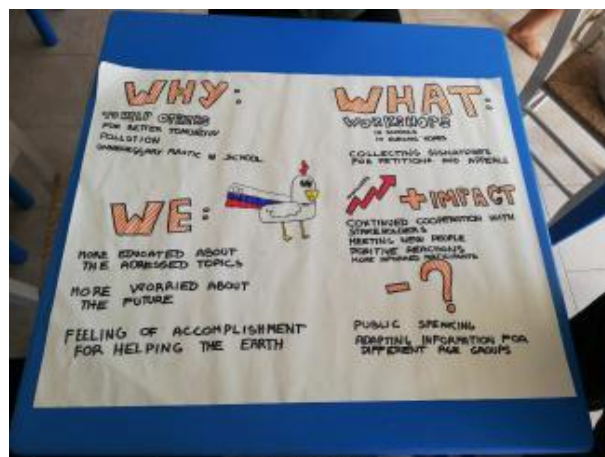 WHY:
TO HELP OTHERS
FOR BETTER TOMORROW
POLLUTION
UNNECESSARY PLASTIC IN SCHOOL
WE:
MORE EDUCATED ABOUT
THE ADRESSED TOPICS
MORE WORRIED ABOUT
THE FUTURE
FEELING OF ACCOMPLISHMENT
FOR HELPING THE EARTH
WHAT:
WORKSHOPS
IN SCHOOLS
IN NURSING HOMES
COLLECTING SIGNATURES
FOR PETITIONS AND APPEALS
+ IMPACT
CONTINUED COOPERATION WITH
STAKEHOLDERS
MEETING NEW PEOPLE
POSITIVE REACTIONS
MORE INFORMED PARTICIPANTS
- ?
PUBLIC SPEAKING
ADAPTING INFORMATION FOR
DIFFERENT AGE GROUPS